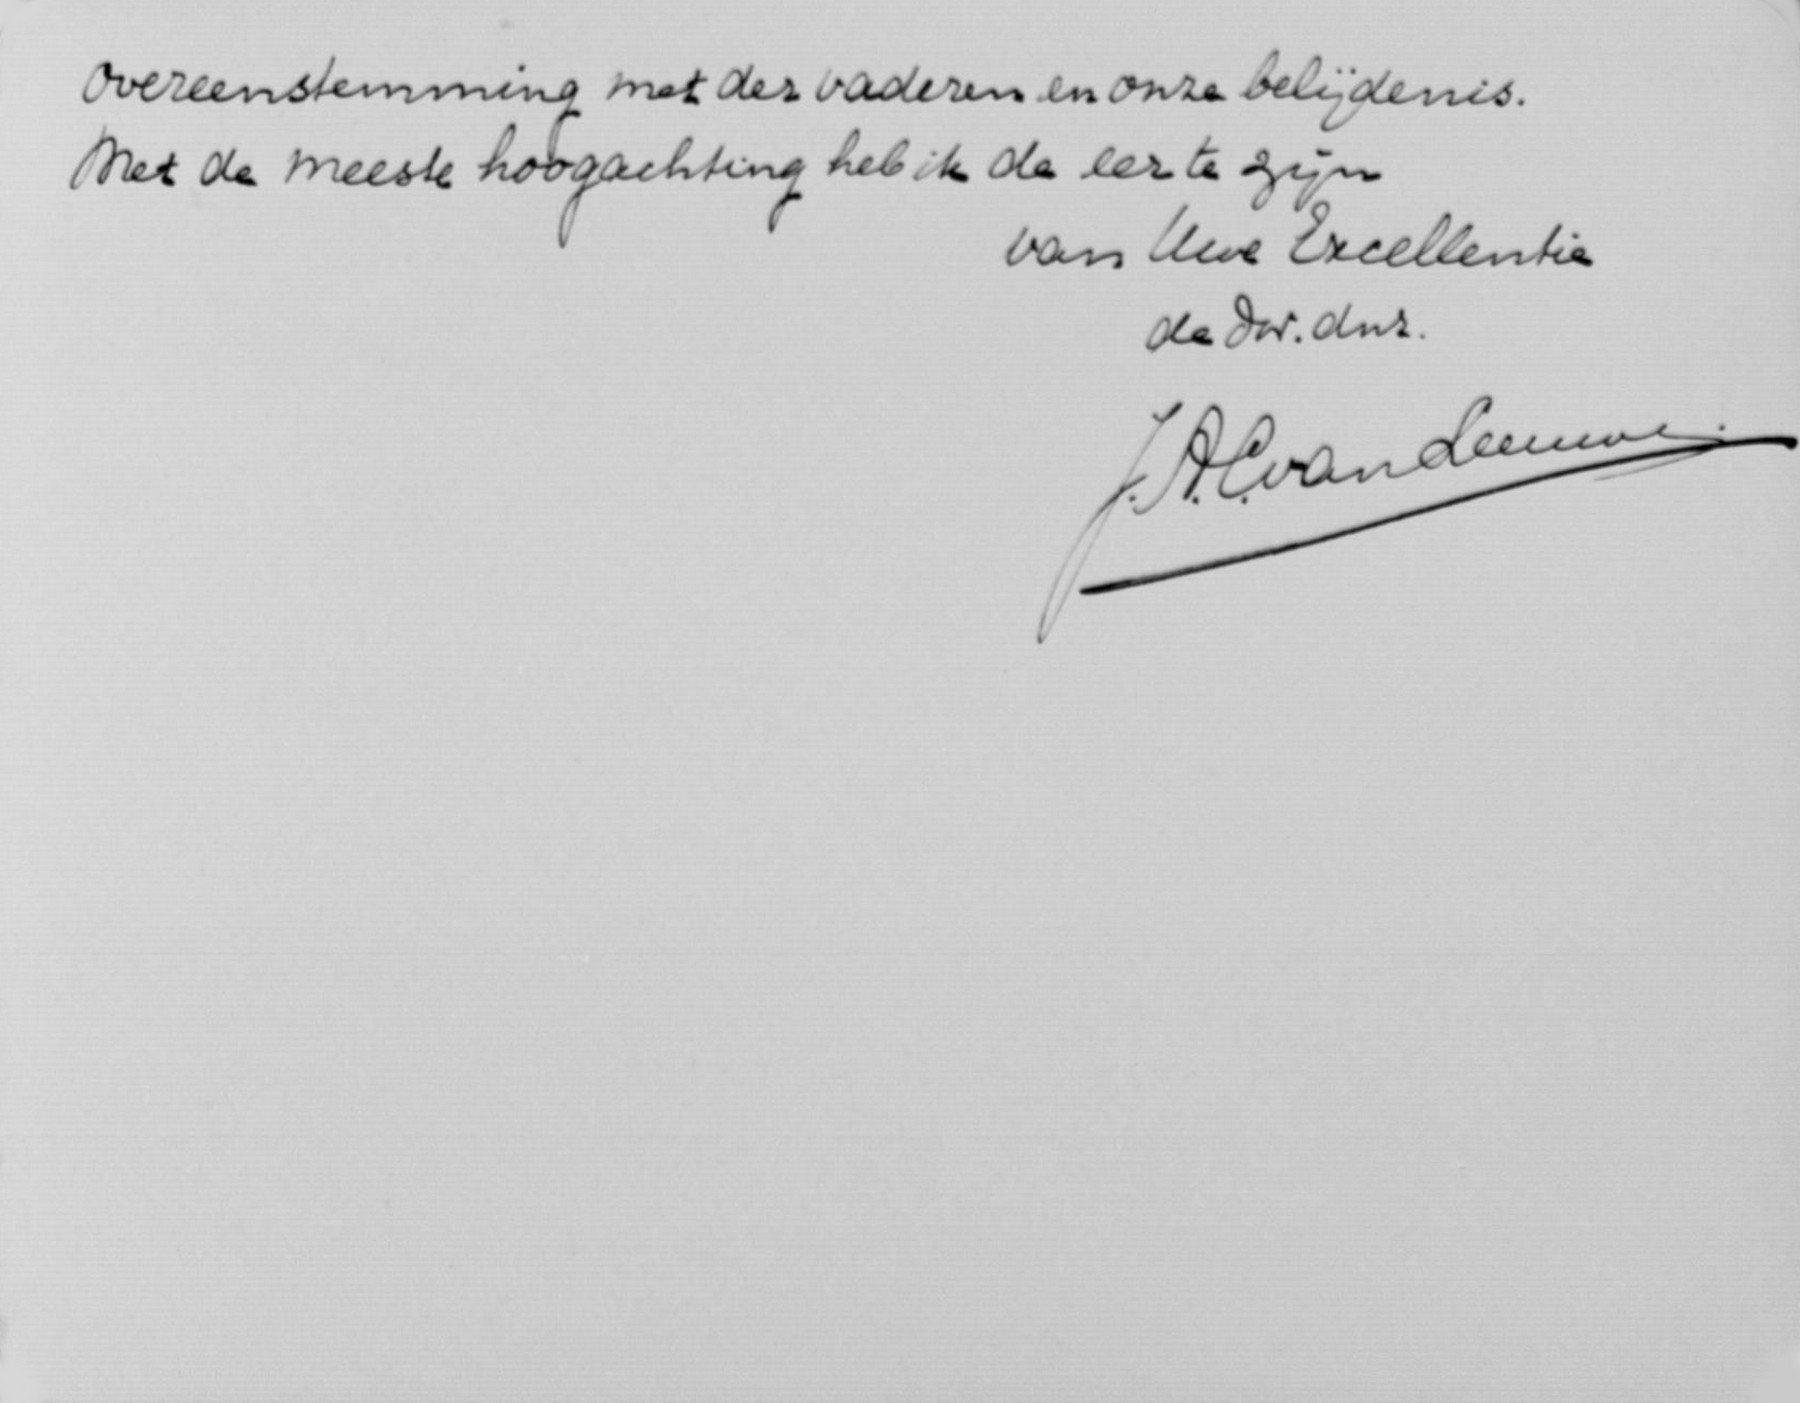 overeenstemming met der vaderen en onze belijdenis.
Met de meeste hoogachting heb ik de eer te zijn
van Uwe Excellentie
de dw. dnr.
J. A. C. van Leeuwen.